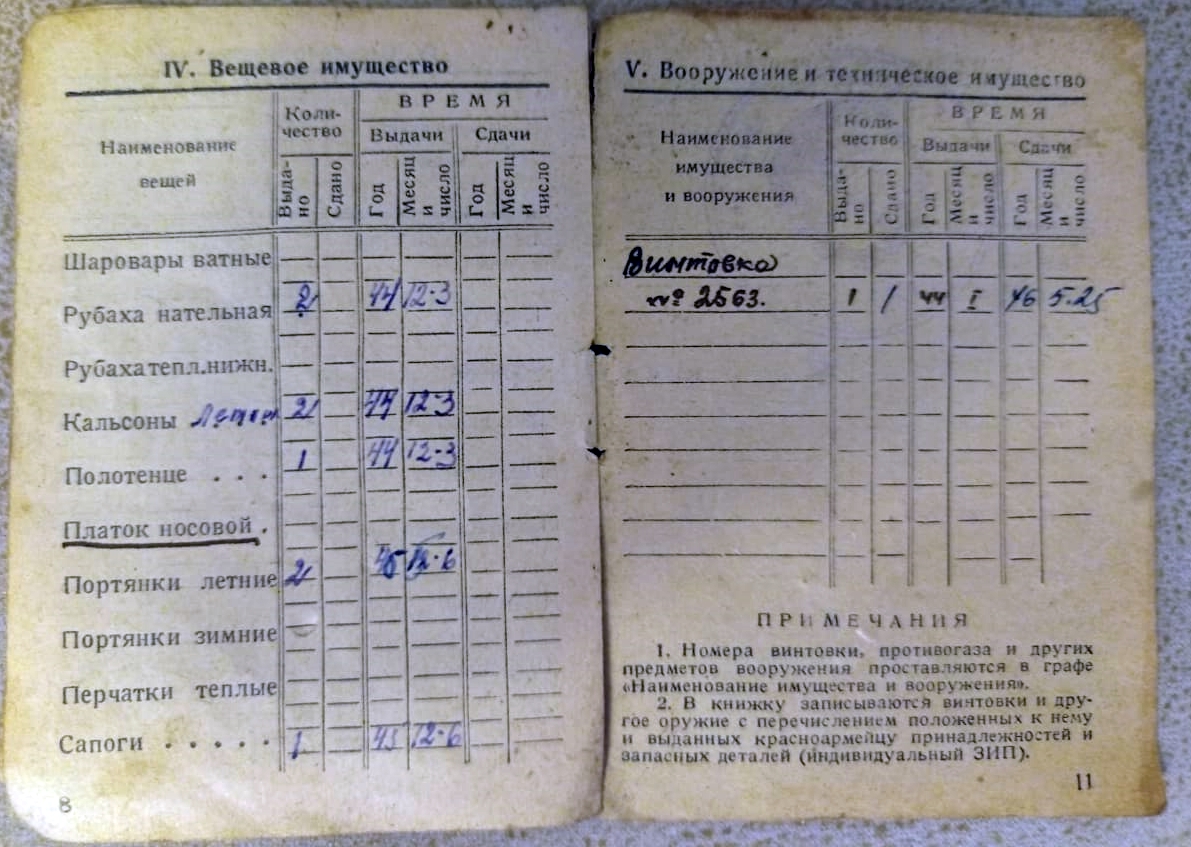 IV. Вещевое имущество
Наименование
вещей
Коли-
чество
ВРЕМЯ
Выдачи
Сдачи
Выда-
но
Сдано
Год
Месяц
и
число
Год
Месяц
и
число
Шаровары ватные
Рубаха нательная 2 44 12-3
Рубаха тепл.нижн.
Кальсоны 2 44 12-3
Полотенце . . . 1 44 12-3
Платок носовой .
Портянки летние 2 45 12-6
Портянки зимние
Перчатки теплые
Сапоги . . . . . 1 45 12-6
8
V. Вооружение и техническое имущество
Наименование
имущества
и вооружения
Коли-
чество
ВРЕМЯ
Выдачи
Сдачи
Выда-
но
Сдано
Год
Месяц
и
число
Год
Месяц
и
число
Винтовка
№ 2563. 1 1 44 I 46 5.25
ПРИМЕЧАНИЯ
1. Номера винтовки, противогаза и других
предметов вооружения проставляются в графе
«Наименование имущества и вооружения».
2. В книжку записываются винтовки и дру-
гое оружие с перечислением положенных к нему
и выданных красноармейцу принадлежностей и
запасных деталей (индивидуальный ЗИП).
11